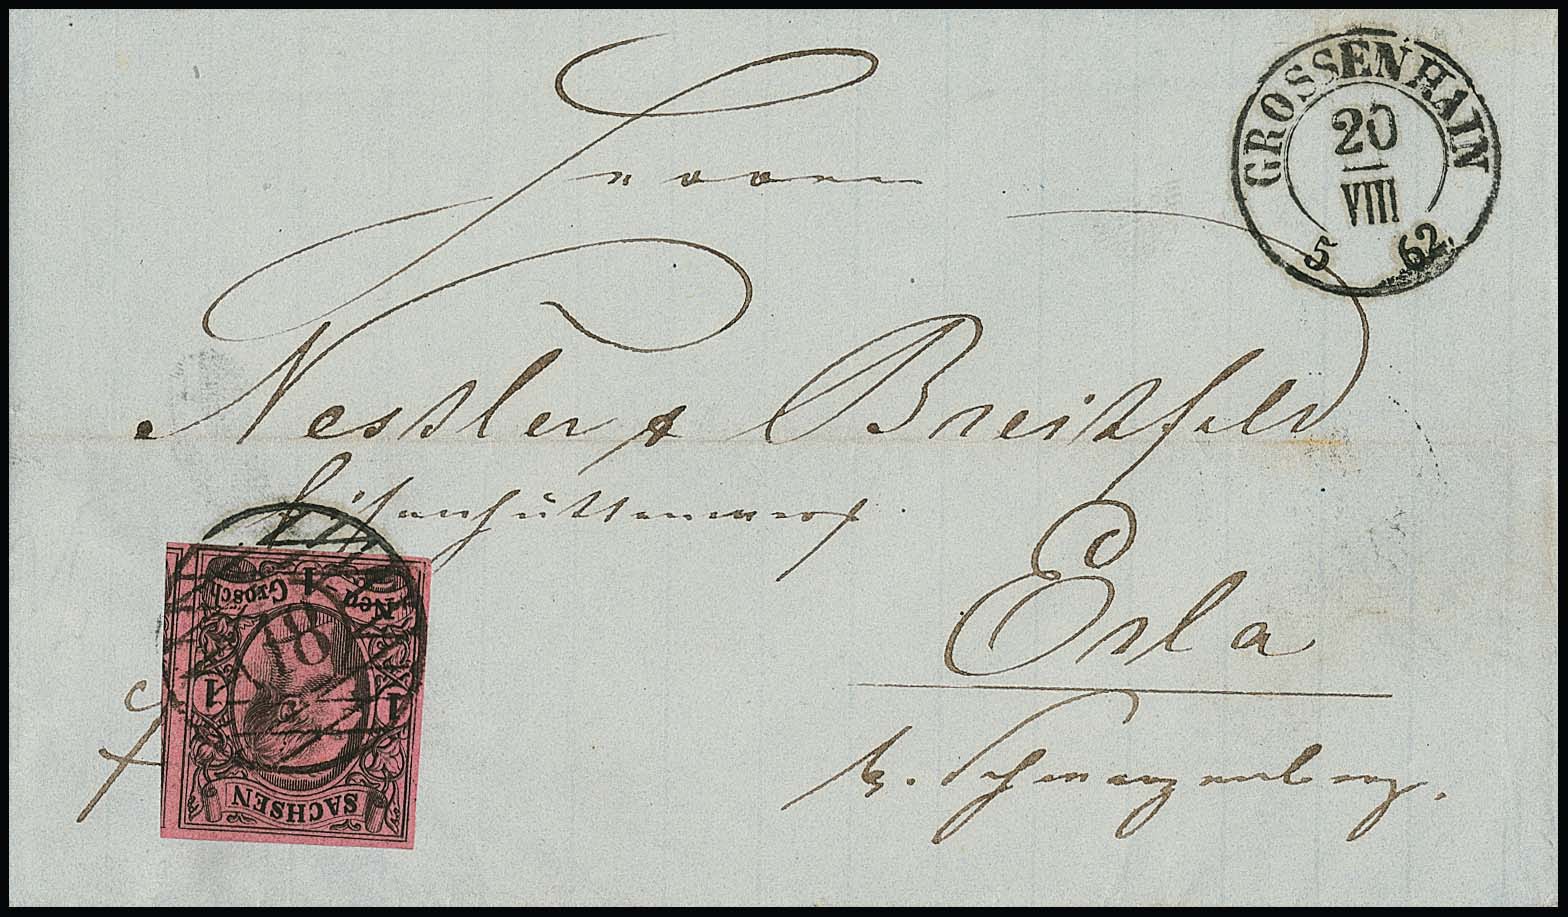 GROSSENHAIN
20
VIII
5 62.
Herren
Nessler & Breitfeld
Eisenhüttenwerk.
Erla
b. Schwarzenberg.
fr
1
Neu Grosch
18
1 1
SACHSEN